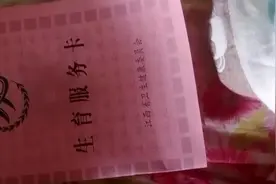 生育服务卡
江西省卫生健康委员会